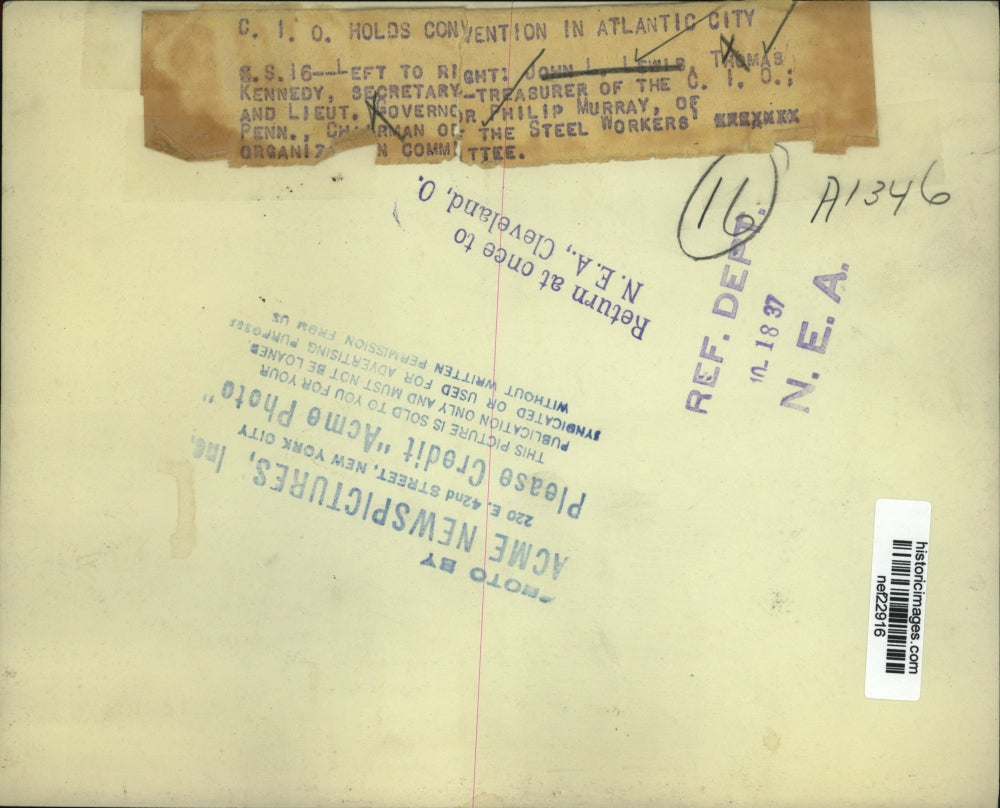 C. I. O. HOLDS CONVENTION IN ATLANTIC CITY
S.S.16--LEFT TO RIGHT: JOHN L. LEWIS, THOMAS
KENNEDY, SECRETARY-TREASURER OF THE C. I. O.;
AND LIEUT. GOVERNOR PHILIP MURRAY, OF
PENN., CHAIRMAN OF THE STEEL WORKERS XXXXXXX
ORGANIZ N COMMITTEE.
16
A1346
Return at once to
N.E.A., Cleveland, O.
REF. DEPT.
18 37
N. E. A.
PHOTO BY
ACME NEWSPICTURES, Inc.
220 E. 42nd STREET, NEW YORK CITY
Please Credit "Acme Photo"
THIS PICTURE IS SOLD TO YOU FOR YOUR
PUBLICATION ONLY AND MUST NOT BE LOANED,
SYNDICATED OR USED FOR ADVERTISING PURPOSES
WITHOUT WRITTEN PERMISSION FROM US
historicimages.com
nef22916